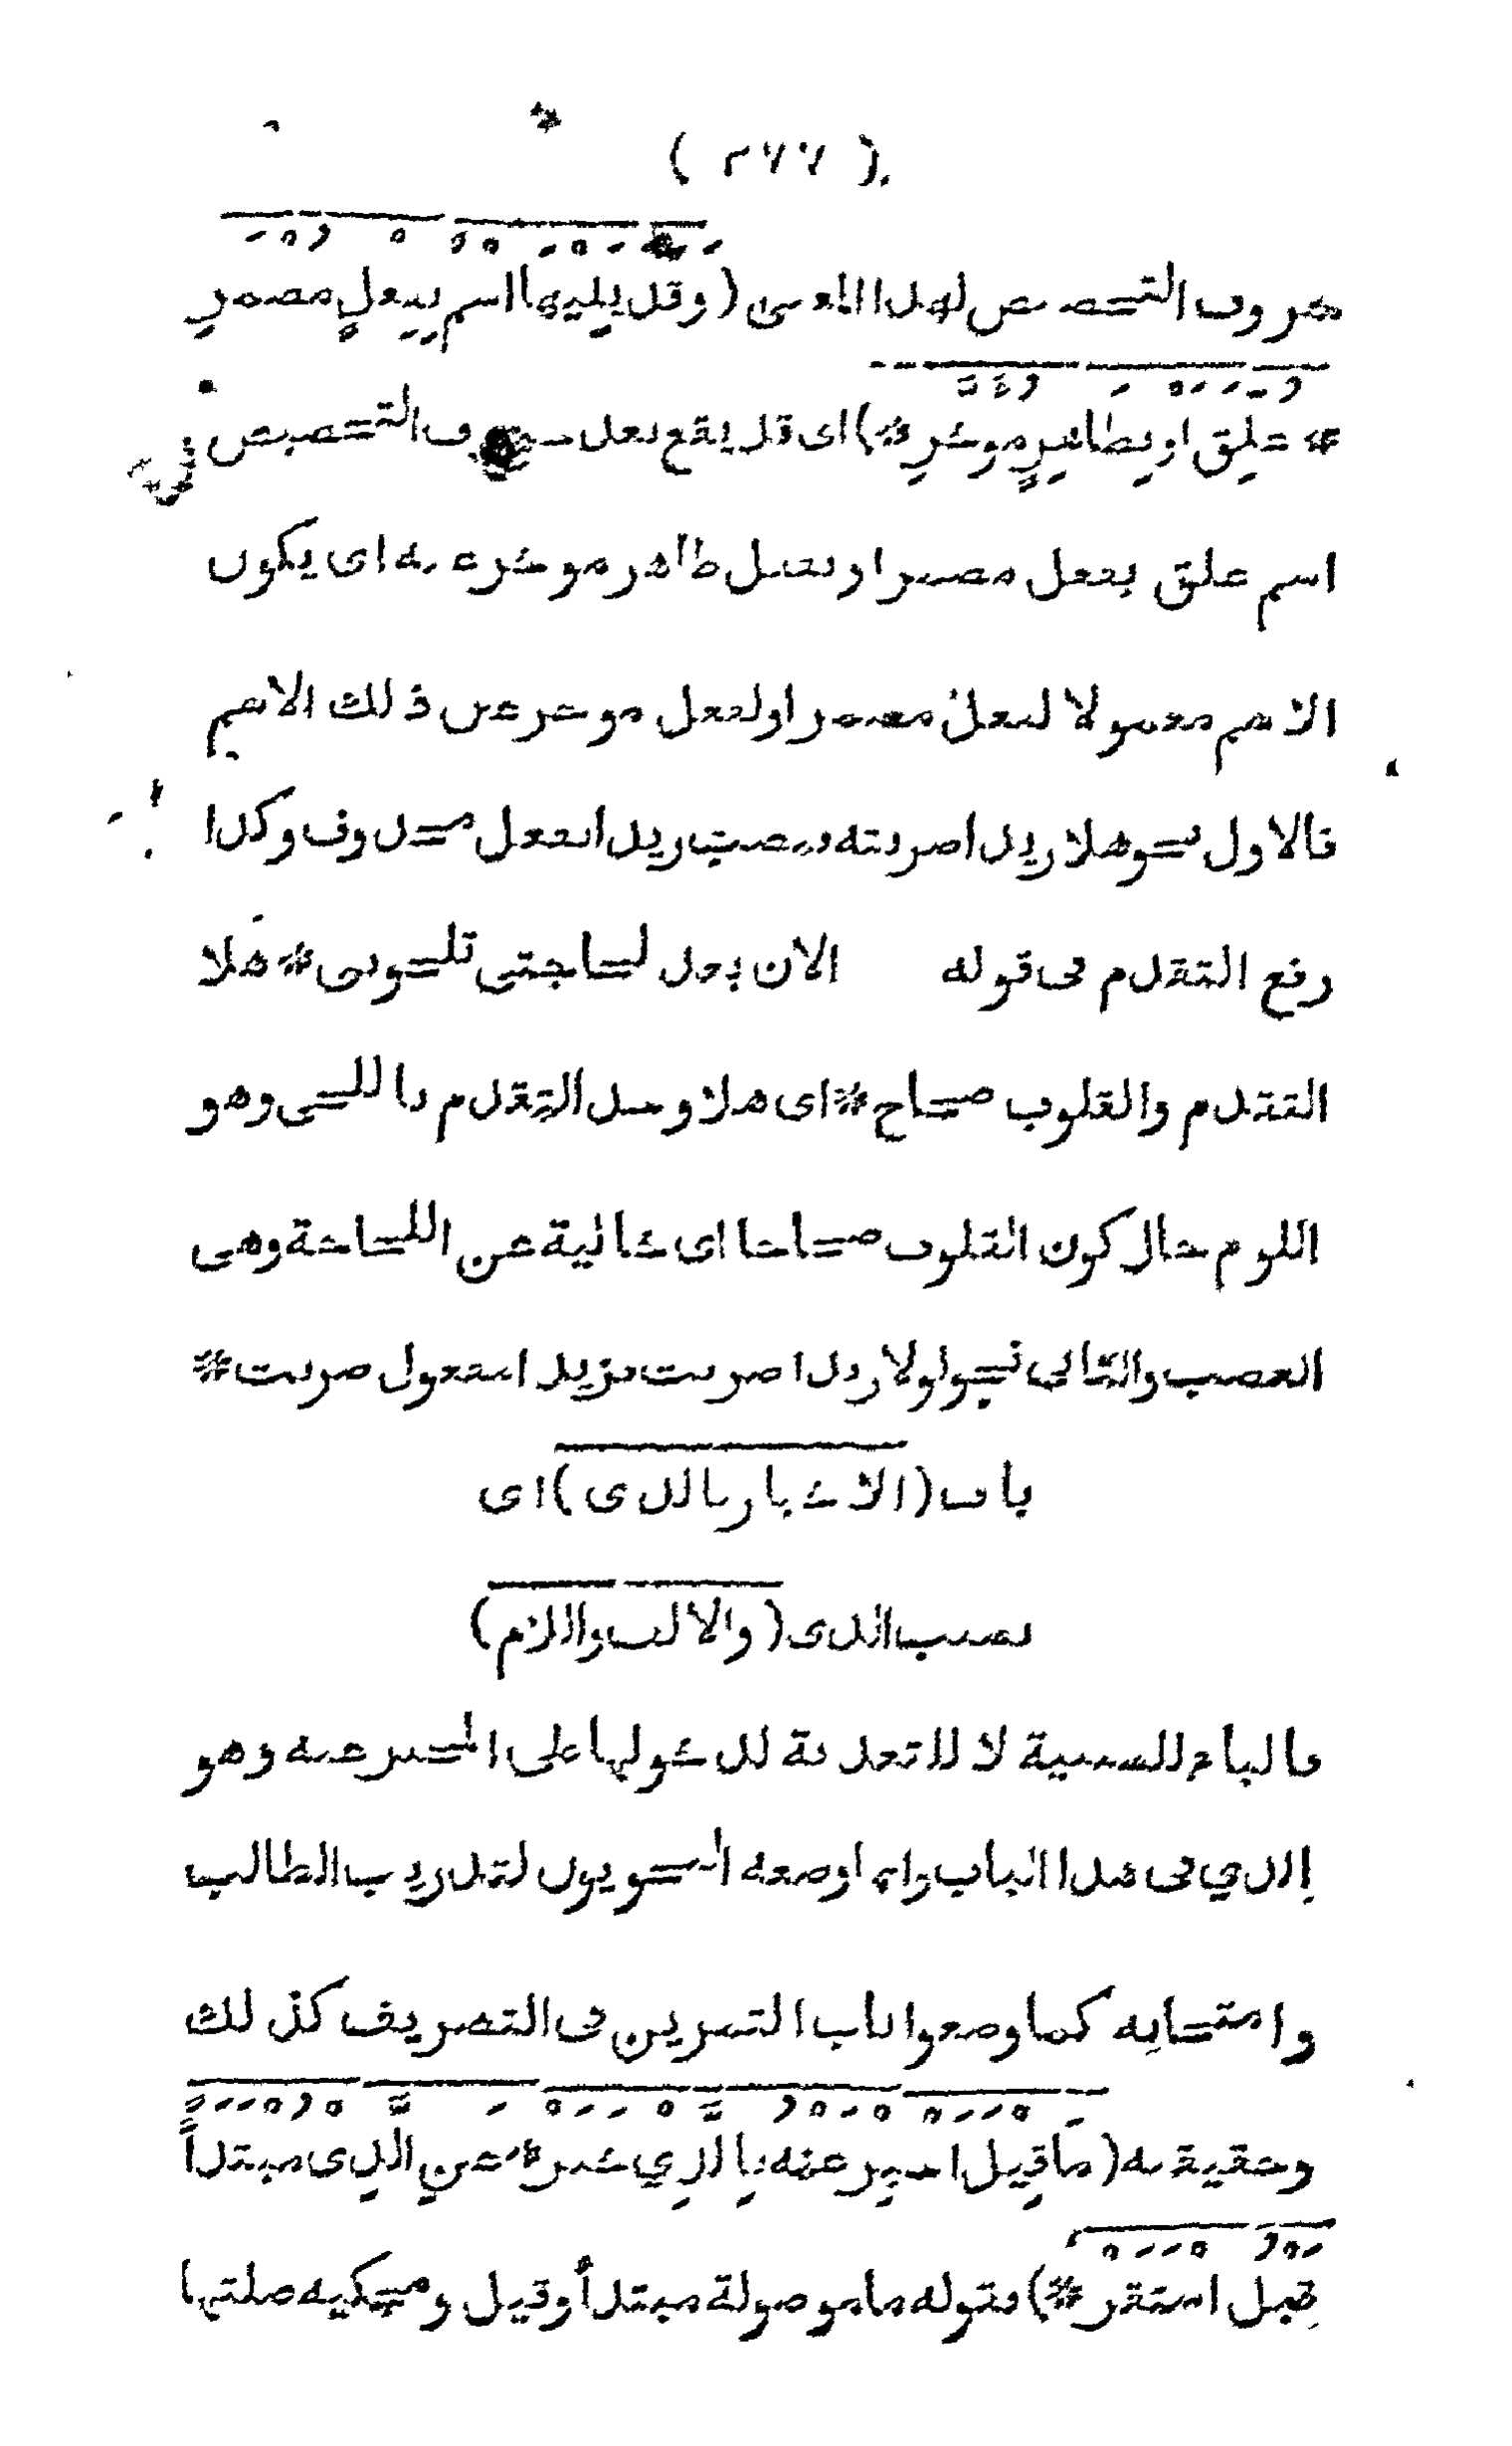 ( ٢٧٧ )
حروف التحضيض لهذا المعنى ( وقد يليها اسم بفعل مضمر
* علق او بظاهر مؤخر * ) اى قد يقع بعد حروف التحضيض
اسم علق بفعل مضمر او بفعل ظاهر موخر عنه اى يكون
الاسم معمولا لفعل مضمر او لفعل موخر عن ذلك الاسم
فالاول نحو هلا زيدا ضربته فنصب زيدا بفعل محذوف وكذا
رفع التقدم فى قوله الان بعد لجاجتى تلحوننى * هلا
التقدم والقلوب صحاح * اى هلا وجد التقدم باللحى وهو
اللوم حال كون القلوب صحاحا اى خالية عن اللجاجة وهى
الغضب والثانى نحو لولا زيدا ضربت فزيد امفعول ضربت *
باب ( الاخبار بالذى ) اى
بسبب الذى ( والالف واللام )
فالباء للسببية لا للتعدية لدخولها على المخبر عنه وهو
الذي فى هذا الباب وانما وضعه النحويون لتدريب الطالب
وامتحانه كما وضعوا باب التمرين فى التصريف كذلك
وحقيقته ( ما قيل اخبر عنه بالذي خبر * عن الذى مبتدأ
قبل استقر * ) فقوله ما موصولة مبتدأ وقيل ومحكيه صلتها